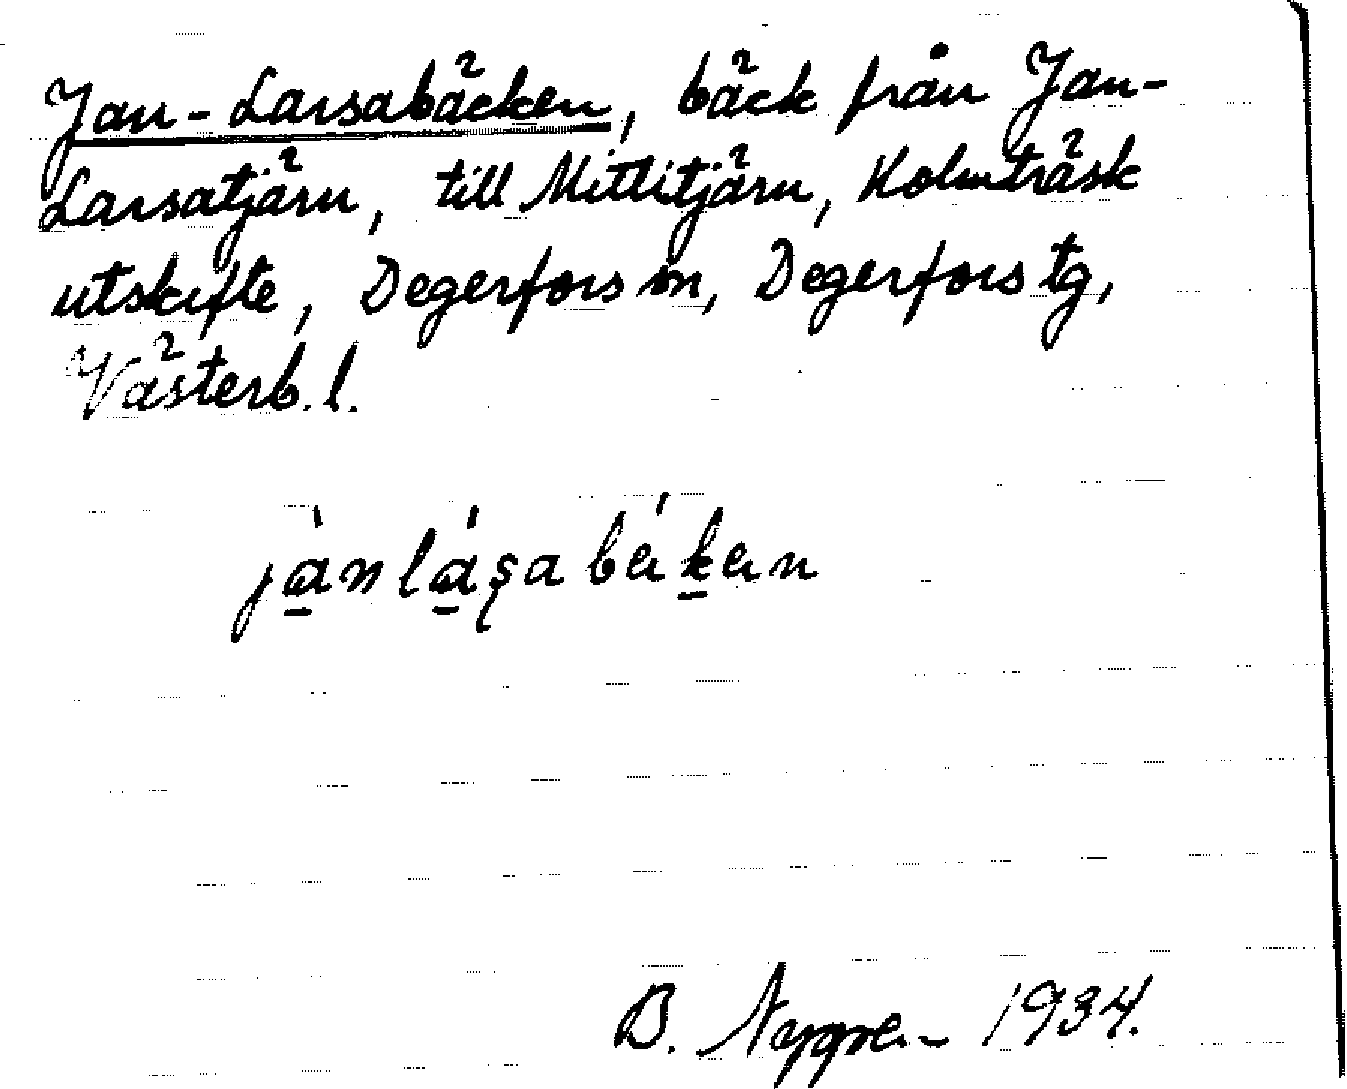 Jan-Larsabäcken, bäck från Jan-
Larsatjärn, till Mittitjärn, Kolmträsk
utskifte, Degerfors sn, Degerfors tg,
Västerb. l.
B. Nygren 1934.